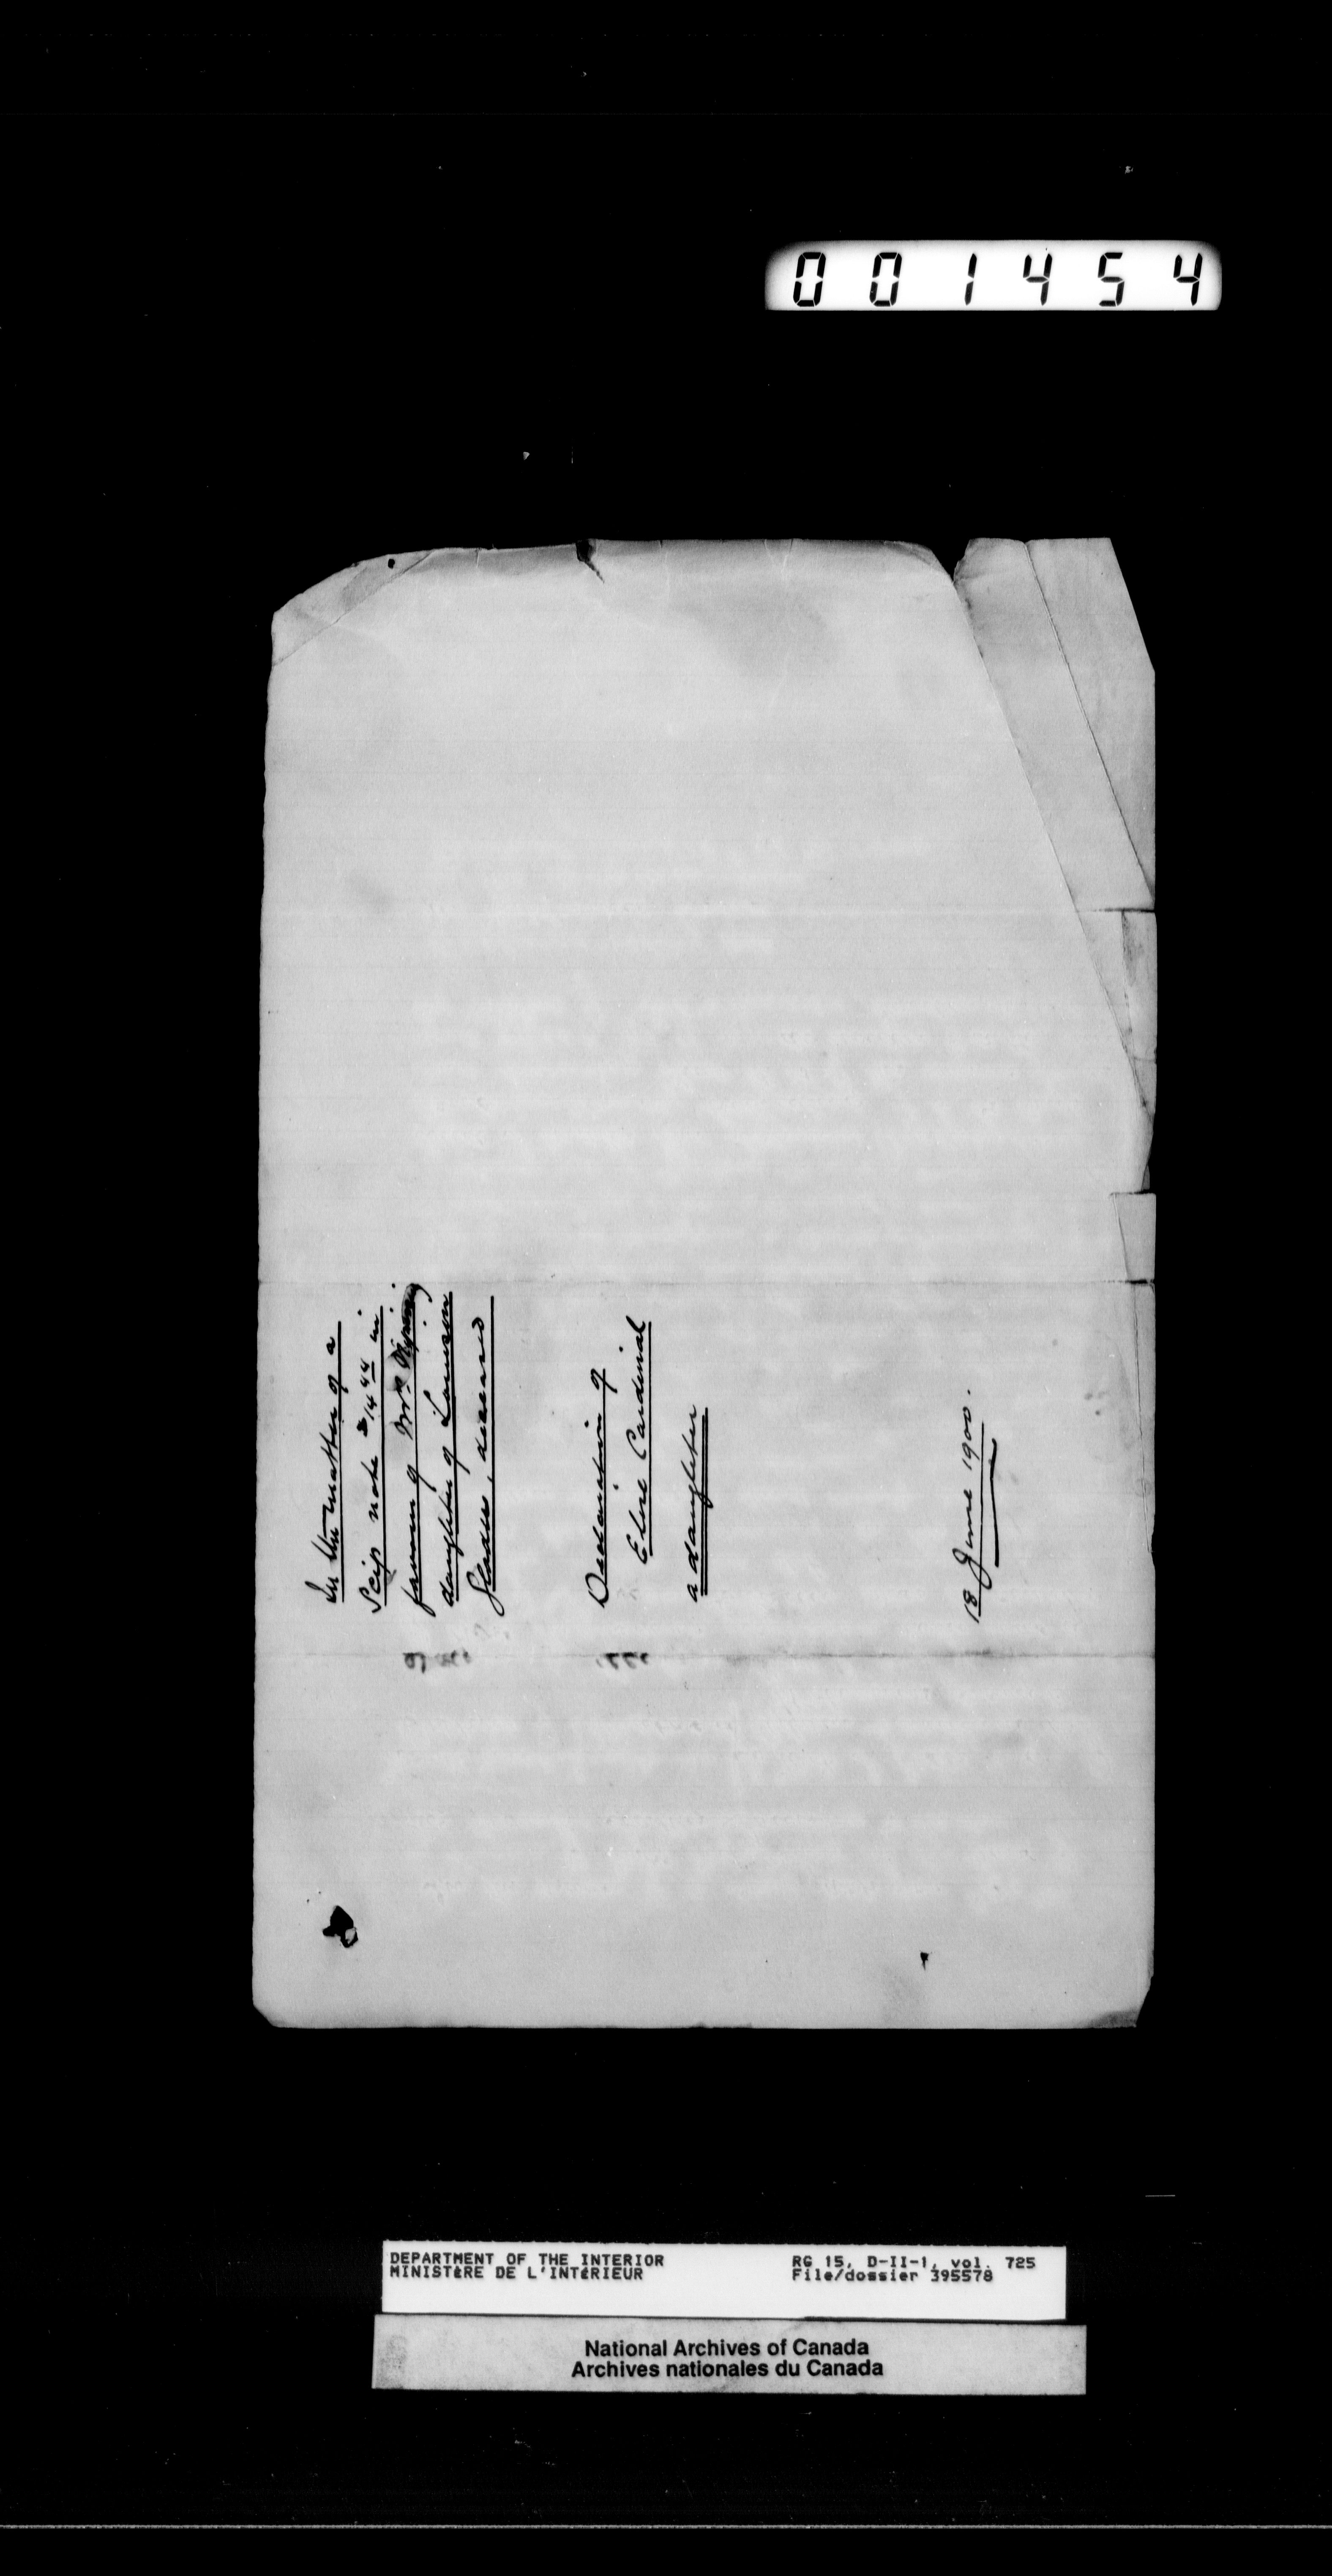 001454
In the matter of a
Scip note in
favour of Mrs
daughter of
deceased
Declaration of
Elise Cardinal
a daughter
18 June 1900.
DEPARTMENT OF THE INTERIOR
MINISTÈRE DE L'INTÉRIEUR
RG 15, D-II-1, vol. 725
File/dossier 395578
National Archives of Canada
Archives nationales du Canada